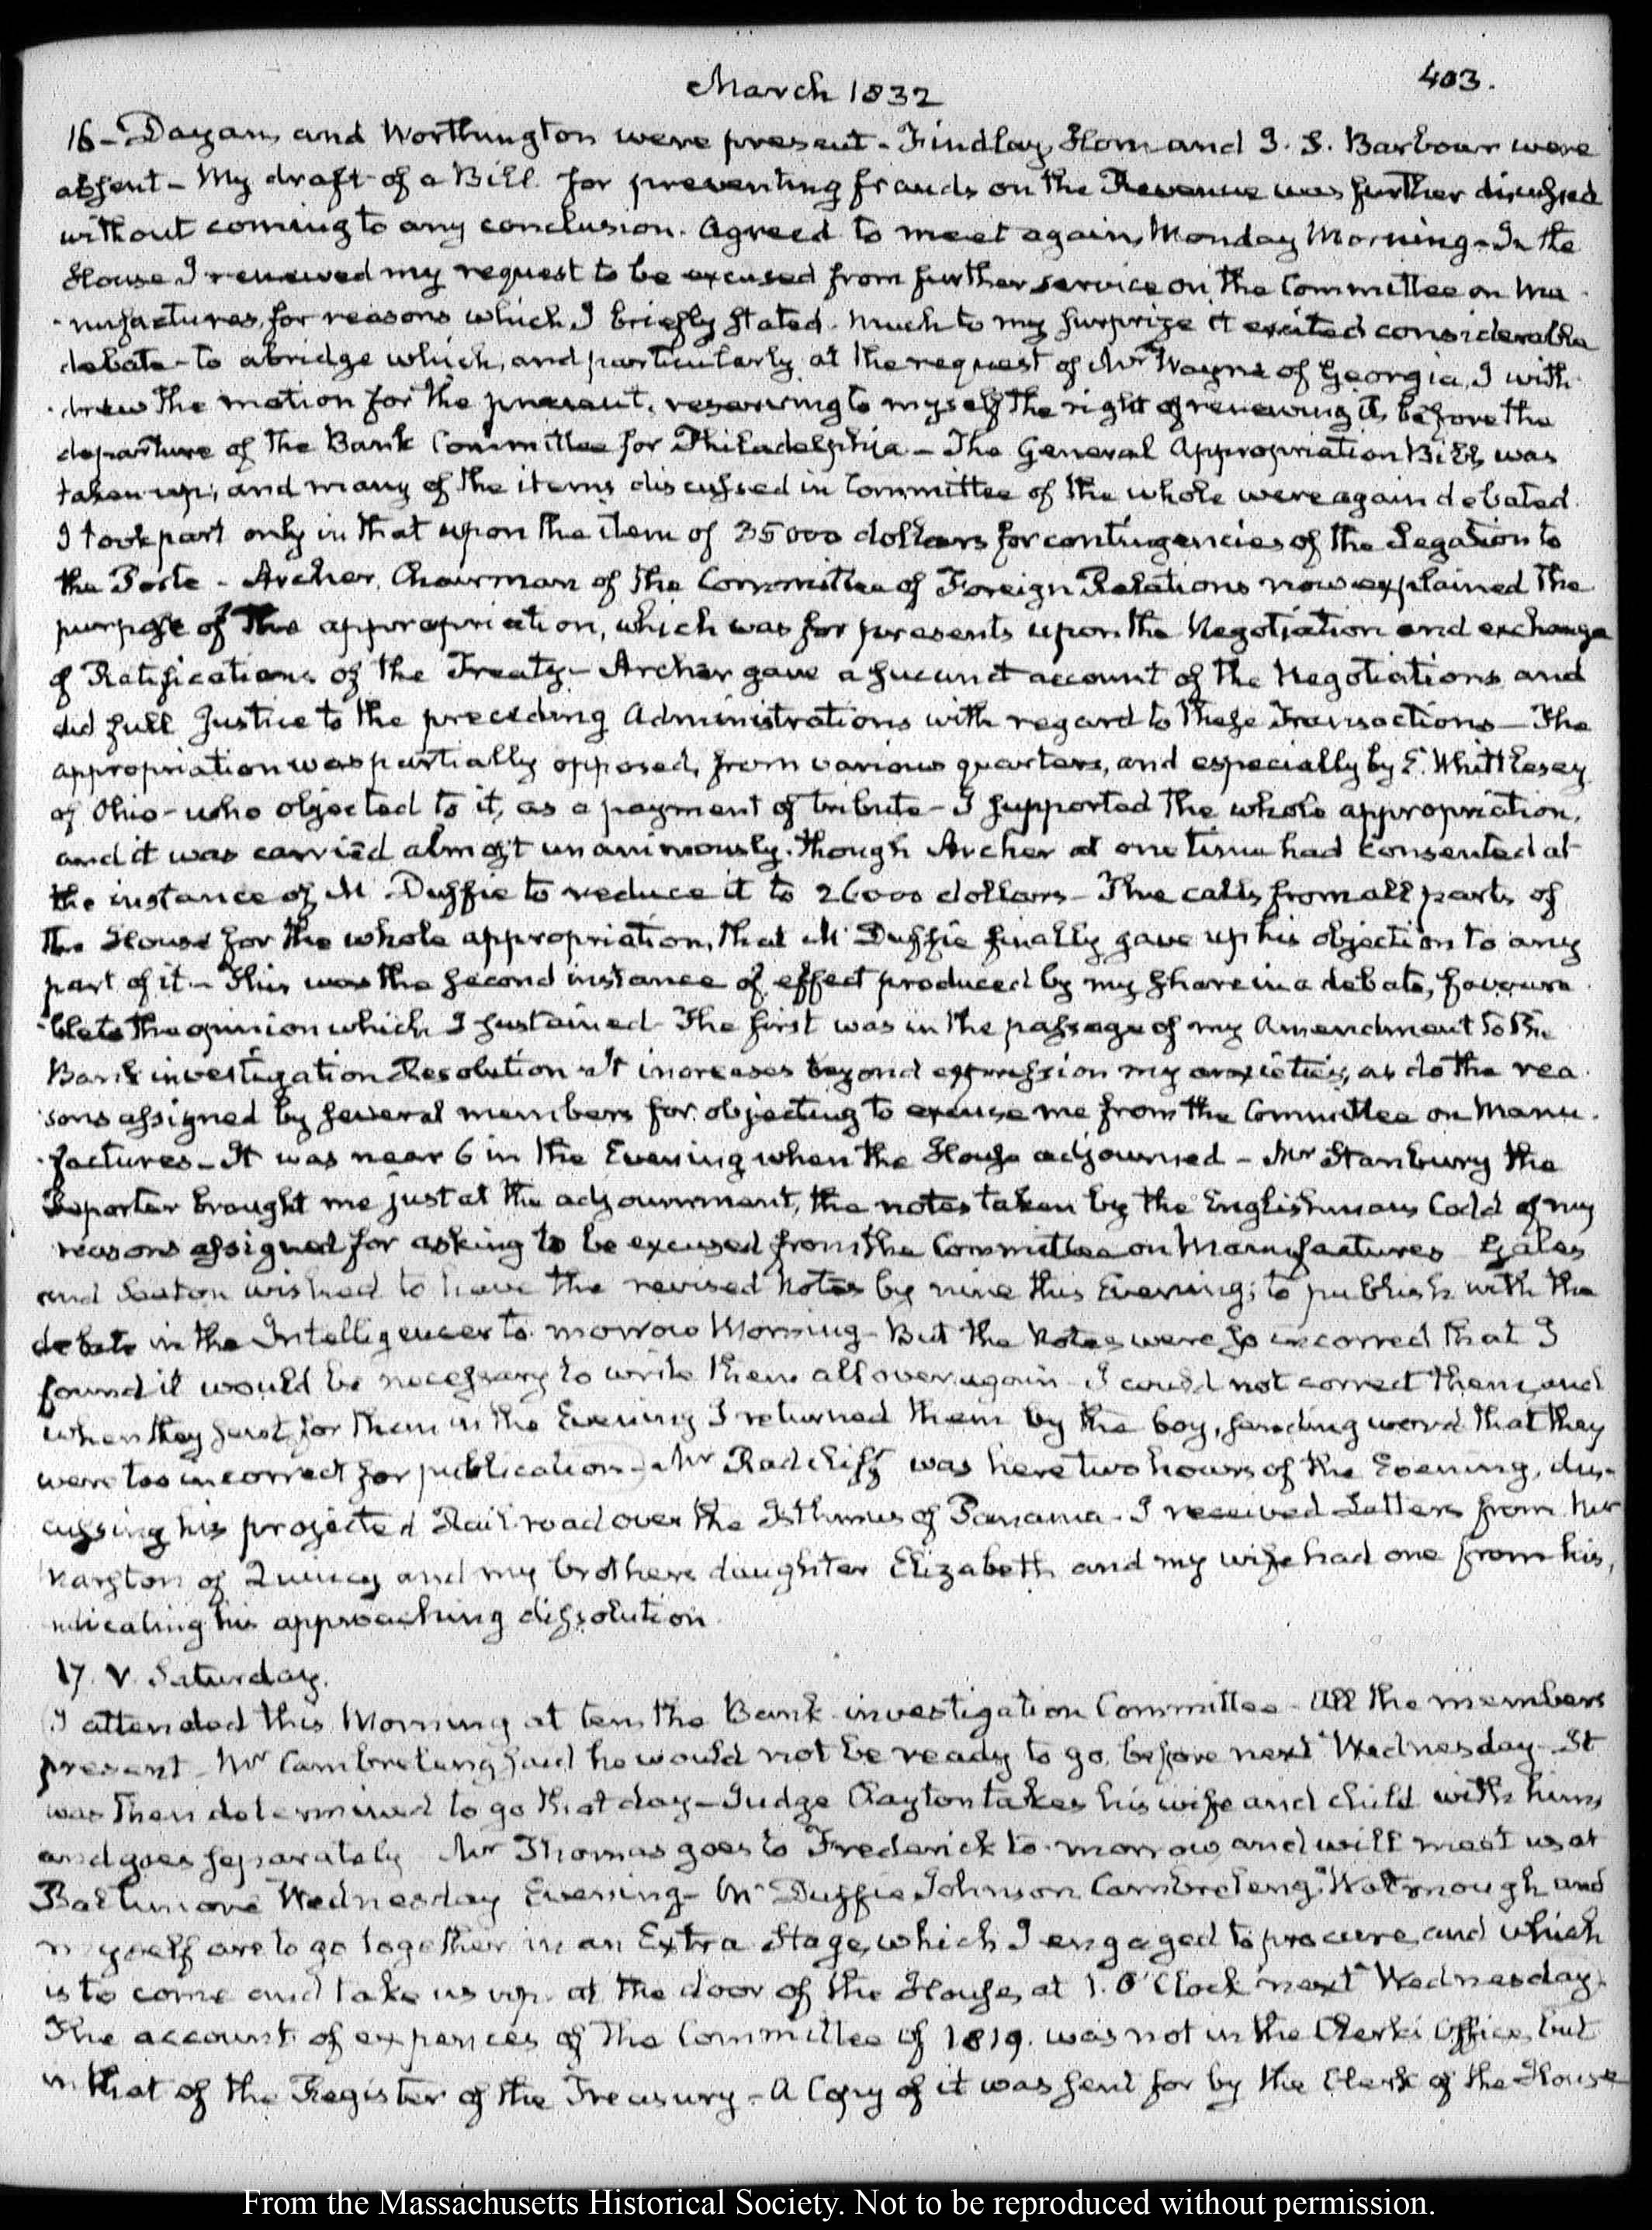 March 1832
403.
16 - Dayan, and Worthington were present - Findlay, Horn and J. S. Barbour were
absent - My draft of a Bill for preventing frauds on the Revenue was further discussed
without coming to any conclusion. Agreed to meet again, Monday Morning - In the
House I renewed my request to be excused from further service on the Committee on Ma-
-nufactures, for reasons which I briefly stated. Much to my surprize it excited considerable
debate - to abridge which, and particularly at the request of Mr Wayne of Georgia, I with-
-drew the motion for the present, reserving to myself the right of renewing it, before the
departure of the Bank Committee for Philadelphia - The General Appropriation Bill, was
taken up, and many of the items discussed in Committee of the whole were again debated.
I took part only in that upon the item of 35000 dollars for contingencies of the Legation to
the Porte - Archer, Chairman of the Committee of Foreign Relations now explained the
purpose of the appropriation, which was for presents upon the Negotiation and exchange
of Ratifications of the Treaty - Archer gave a succinct account of the Negotiations and
did full Justice to the preceding Administrations with regard to these Transactions - The
appropriation was partially opposed, from various quarters, and especially by E. Whittlesey
of Ohio - who objected to it, as a payment of tribute - I supported the whole appropriation,
and it was carried almost unanimously, though Archer at one time had consented at
the instance of McDuffie to reduce it to 26000 dollars - The calls from all parts of
the House for the whole appropriation, that McDuffie finally gave up his objection to any
part of it - This was the second instance of effect produced by my share in a debate, favoura-
-ble to the opinion which I sustained - The first was in the passage of my Amendment to the
Bank investigation Resolution - It increases beyond expression my anxieties, as do the rea-
-sons assigned by several members for objecting to excuse me from the Committee on Manu-
-factures - It was near 6 in the Evening when the House adjourned - Mr Stansbury the
Reporter brought me just at the adjournment, the notes taken by the Englishman Codd of my
reasons assigned for asking to be excused from the Committee on Manufactures Gales
and Seaton wished to have the revised Notes by nine this Evening; to publish with the
debate in the Intelligencer to-morrow Morning - But the Notes were so incorrect that I
found it would be necessary to write them all over again - I could not correct them, and
when they sent for them in the Evening I returned them by the boy, sending word that they
were too incorrect for publication - Mr Radcliff was here two hours of the Evening, dis-
cussing his projected Rail-road over the Isthmus of Panama - I received Letters from Mr
of Quincy and my brothers daughter Elizabeth and my wife had one from him,
indicating his approaching dissolution.
17. V. Saturday.
I attended this Morning at ten, the Bank investigation Committee - All the members
present - Mr Cambreleng said he would not be ready to go before next Wednesday - It
was then determined to go that day - Judge Clayton takes his wife and child with him,
and goes separately Mr Thomas goes to Frederick to-morrow, and will meet us at
Baltimore Wednesday Evening - McDuffie, Johnson, Cambreleng, Watmough and
myself are to go together in an Extra Stage, which I engaged to procure, and which
is to come and take us up at the door of the House, at 1. O'Clock next Wednesday.
The account of expences of the Committee of 1819. was not in the Clerk's Office, but
in that of the Register of the Treasury - A Copy of it was sent for by the Clerk of the House
From the Massachusetts Historical Society. Not to be reproduced without permission.